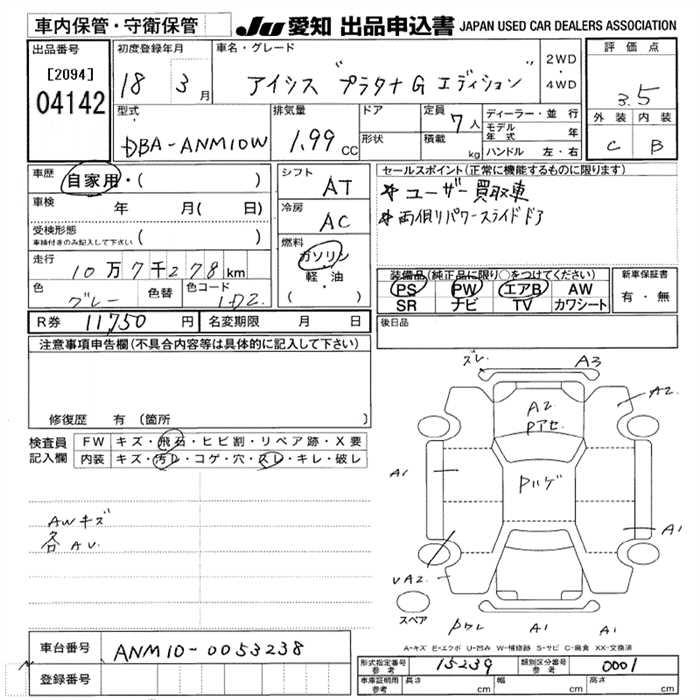 車内保管・守衛保管
JU 愛知 出品申込書 JAPAN USED CAR DEALERS ASSOCIATION
出品番号
[2094]
04142
初度登録年月
18 3月
車名・グレード
アイシス "プラタナGエディション"
2WD
・
4WD
評価点
3.5
外装 内装
C B
型式
DBA-ANM10W
排気量
1.99 CC
ドア
形状
定員
7人
積載
kg
ディーラー・並行
モデル年式 年
ハンドル 左・右
車歴
自家用・( )
車検 年 月( 日)
受検形態
車検付きのみ記入して下さい
( )
走行
10万7千278km
色
グレー
色替
色コード
1D2
シフト
AT
冷房
AC
燃料
ガソリン
・
軽・油
( )
セールスポイント(正常に機能するものに限ります)
* ユーザー買取車
* 両側リパワースライドドア
装備品(純正品に限り○をつけてください)
PS PW エアB AW
SR ナビ TV カワシート
新車保証書
有・無
R券 11,750 円
名変期限 月 日
後日品
注意事項申告欄(不具合内容等は具体的に記入して下さい)
修復歴 有(箇所 )
検査員記入欄
FW キズ・飛石・ヒビ割・リペア跡・X要
内装 キズ・汚レ・コゲ・穴・スレ・キレ・破レ
AWキズ
各AU
ズレ A3
A2
A2
Pアセ
A1
Pハゲ
A1
UA2
スペア
Pワレ A1 A1
A-キズ E-エクボ U-凹み W-補修跡 S-サビ C-腐食 XX-交換済
車台番号 ANM10-0053238
登録番号
形式指定番号
参考
15239
類別区分番号
参考
0001
車庫証明用
参考
長さ cm
幅 cm
高さ cm